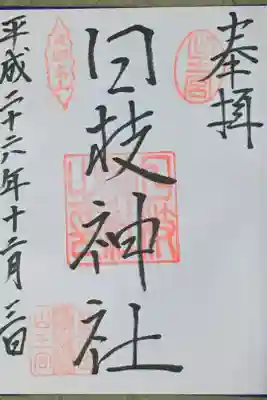 奉拝
日枝神社
平成二十六年十二月三日